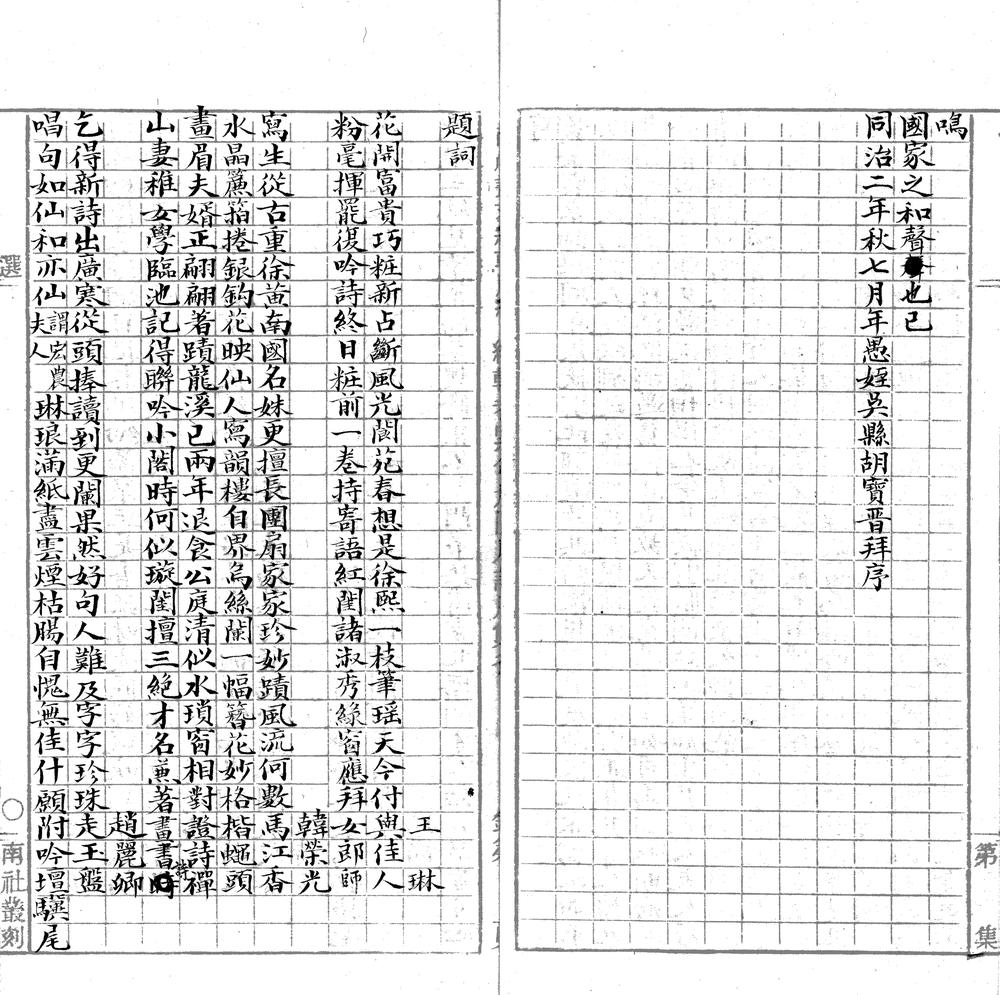 鳴
國家之和聲也已
同治二年秋七月年愚姪吳縣胡寶晋拜序
第
集
題詞
王琳
花開富貴巧粧新占斷風光閬苑春想是徐熙一枝筆瑶天今付與佳人
粉毫揮罷復吟詩終日粧前一卷持寄語紅閨諸淑秀綠窗應拜女郎師
韓榮光
寫生從古重徐黄南國名姝更擅長團扇家家珍妙蹟風流何數馬江香
水晶簾箔捲銀鈎花映仙人寫韻樓自界烏絲闌一幅簪花妙格楷蠅頭
畫眉夫婿正翩翩著蹟龍溪已兩年退食公庭清似水瑣窗相對證詩禪
山妻稚女學臨池記得聯吟小閣時何似璇閨擅三絕才名兼著畫書詩
趙麗卿
乞得新詩出廣寒從頭捧讀到更闌果然好句人難及字字珍珠走玉盤
唱句如仙和亦仙謂宏農夫人琳琅滿紙盡雲煙枯腸自愧無佳什願附吟壇驥尾
選
〇
南社叢刻